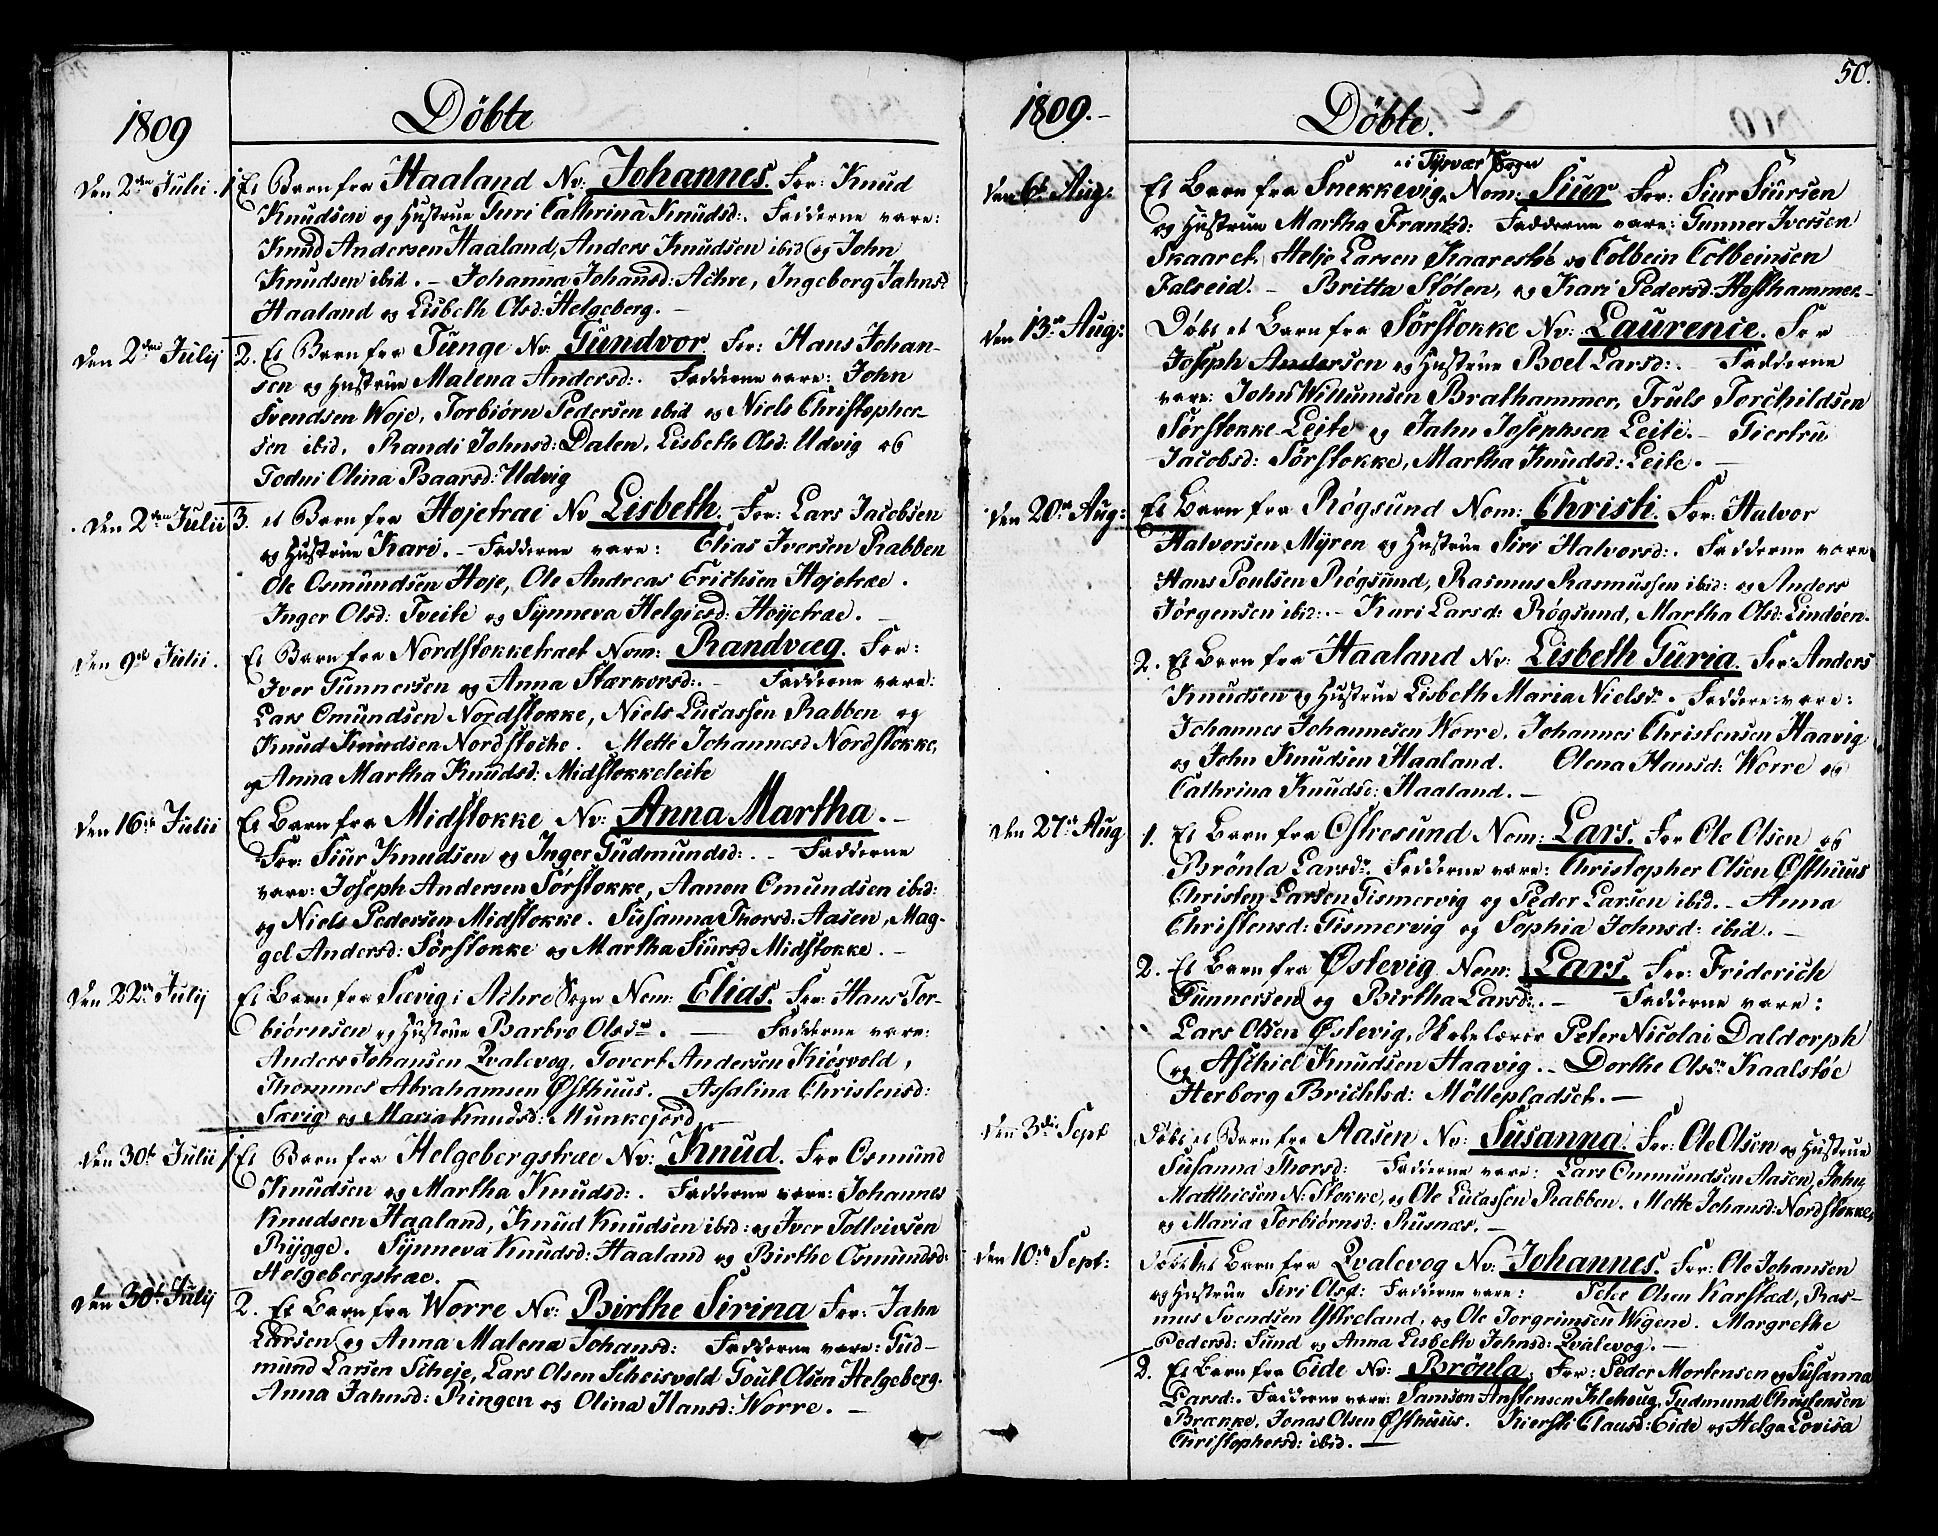 1809
Döbte
Den 2den Julii. 1. Et Barn fra Haaland Nv: Johannes. For: Knud
Knudsen og Hustrue Guri Cathrina Knudsd:. Fadderne vare:
Knud Andersen Haaland, Anders Knudsen ibid og John
Knudsen ibid. - Johanna Johansd: Achre, Ingeborg Jahnsd:
Haaland og Lisbeth Olsd: Helgeberg. -
Den 2den Julij 2. Et Barn fra Tunge Nv: Gundvor. For: Hans Johan-
sen og Hustrue Malena Andersd:. Fadderne vare: John
Svendsen Woje, Torbiörn Pedersen ibid og Niels Christopher-
sen ibid. Randi Johnsd: Dalen, Lisbeth Olsd: Udvig og
Todni Olina Baarsd: Udvig
Den 2den Julii 3. et Barn fra Hojetrai Nv Lisbeth. For: Lars Jacobsen
og Hustrue Kari. - Fadderne vare: Elias Iversen Rabben
Ole Osmundsen Hoje, Ole Andreas Erichsen Hojetræ.
Inger Olsd: Tveite og Synneva Helgiesd: Hoyetræ. -
Den 9de Julii. Et Barn fra Nordstokketraet Nom: Randvæg. For:
Iver Gunnersen og Anna Stærkorsd:. - Fadderne vare:
Lars Omundsen Nordstokke, Niels Lucassen Rabben og
Knud Knudsen Nordstoche. Mette Johannesd Nordstokke,
og Anna Martha Knudsd: Midstokkeleite
Den 16de Julii Et Barn fra Midstokke Nv: Anna Martha. -
For: Siur Knudsen og Inger Gudmundsd:. - Fadderne
vare: Joseph Andersen Sörstokke, Aanon Omundsen ibid:
og Niels Pedersen Midstokke. Susanna Thorsd: Aasen, Mag-
gel Andersd: Sörstokke og Martha Siursd Midstokke. -
Den 22de Julij Et Barn fra Sævig i Achre Sogn Nom: Elias. For: Hans Tor-
biörnsen og Hustrue Barbro Olsdr. - Fadderne vare:
Anders Johansen Qvalevog, Govert Andersen Kiösvold,
Thommes Abrahamsen Østhuus. Assalina Christensd:
Sævig og Maria Knudsd: Munkejord
Den 30te Julii 1. Et Barn fra Helgebergstræ Nv: Knud. For Osmund
Knudsen og Martha Knudsd:. Fadderne vare: Johannes
Knudsen Haaland, Knud Knudsen ibid: og Iver Tollvivsen
Rygge. Synneva Knudsd: Haaland og Birthe Osmundsd:
Helgebergstræ.
Den 30te Julij 2. Et Barn fra Worre Nv: Birthe Sirina For: Jahn
Larsen og Anna Malena Johansd: Fadderne vare: Gud-
mund Larsen Scheje, Lars Olsen Scheisvold Goul Olsen Helgeberg.
Anna Jahnsd: Ringen og Olina Hansd: Worre. -
50.
1809.-
Döbte.
i Tysvær Sogn
Den 6te Aug: Et Barn fra Snekkevig, Nom: Siur For: Siur Siursen
og Hustrue Martha Frantzd: Fadderne vare: Gunner Iversen
Skaaret, Helje Larsen Kaarestöe og Colbein Colbeinsen
Falseid. - Britta Stölen, og Kari Pedersd: Hofthammer. -
Den 13de Aug: Döbt et Barn fra Sörstokke Nv: Laurence. For
Joseph Andersen og Hustrue Boel Larsd:. - Fadderne
vare: John Willumsen Brathammer, Truls Torchildsen
Sörstokke Leite og Jahn Josephsen Leite. - Giertru
Jacobsd: Sörstokke, Martha Knudsd: Leite. -
Den 20de Aug: Et Barn fra Rögsund Nom: Christi. For: Halvor
Halvorsen Myren og Hustrue Siri Halvorsd:. Fadderne vare
Hans Poulsen Rögsund, Rasmus Rasmussen ibid: og Anders
Jörgensen ibid:. - Kari Larsd: Rögsund, Martha Olsd: Lindöen.
2. Et Barn fra Haaland Nv: Lisbeth Guria. For Anders
Knudsen og Hustrue Lisbeth Maria Nielsdr. Faddere vare:
Johannes Johannesen Worre, Johannes Christensen Haavig
og John Knudsen Haaland. Olena Hansd: Worre og
Cathrina Knudsd: Haaland. -
Den 27de Aug 1. Et Barn fra Ostresund Nom: Lars. For Ole Olsen og
Brönla Larsdr. Fadderne vare: Christopher Olsen Østhuus
Christen Larsen Gismervig og Peder Larsen ibid. - Anna
Christensd: Gismervig og Sophia Johnsd: ibid. -
2. Et Barn fra Østevig Nom: Lars. For: Friderich
Gunnersen og Birtha Larsd:. - Fadderne vare:
Lars Olsen Østevig, Skolelærer Peter Nicolai Daldorph
og Aschiel Knudsen Haavig. - Dorthe Olsdr Kaalstöe
Herborg Brichtsd: Möllepladset. -
Den 3die Sept Döbt et Barn fra Aasen Nv: Susanna. For: Ole Olsen og Hustrue
Susanna Thorsd: Fadderne vare: Lars Ommundsen Aasen, John
Matthiesen N: Stokke, og Ole Lucassen Rabben. Mette Johansd: Nordstokke,
og Maria Torbiörnsd: Rusnæs. -
Den 10de Sept: Döbt 1 et Barn fra Qvalevog Nv: Johannes. For: Ole Johansen
og Hustrue Siri Olsd: Fadderne vare: Peder Olsen Karstæd, Ras-
mus Svendsen Ystreland, og Ole Torgrimsen Wigene. Margrethe
Pedersd: Sund og Anna Lisbeth Johnsd: Qvalevog. -
2. Et Barn fra Eide Nv: Brönla, For: Peder Mortensen og Susanna
Larsd:. Fadderne vare: Samson Anstensen Klehoug, Gudmund Christensen
Brænke, Jonas Olsen Østhuus. Kiersti Clausd: Eide og Helga Lovisa
Christophersd: ibid. -